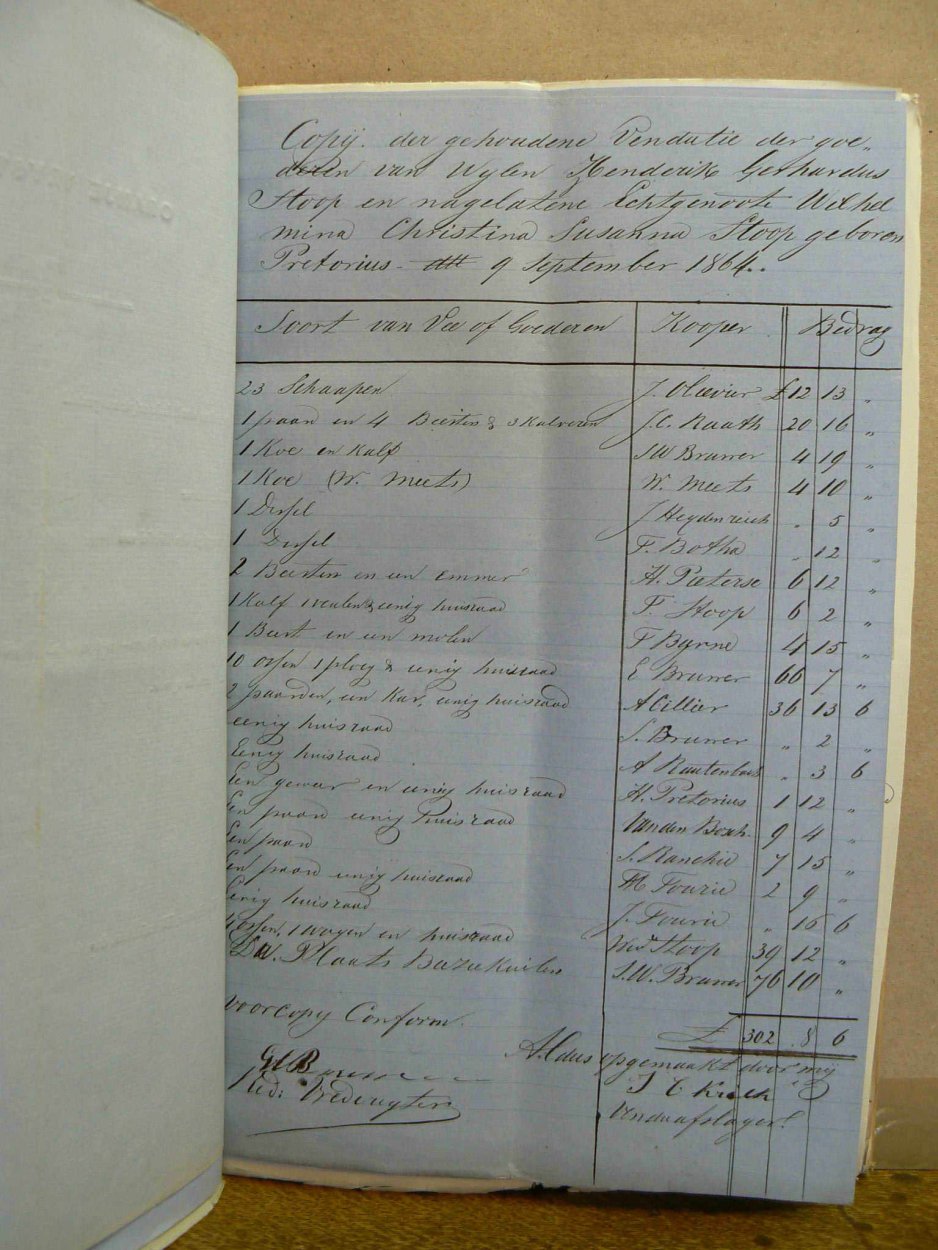 Copij. der gehoudene Vendutie der goe„
deren van Wylen Henderik Gerhardus
Stoop en nagelatene Echtgenoote Wilhel
mina Christina Susanna Stoop geboren
Pretorius 9 September 1864.
Soort van Vee of Goederen Kooper Bedrag
23 Schaapen J. Olievier £12 13 „
1 paard en 4 Beesten & 3 Kalveren J.C. Raath 20 16 „
1 Koe en Kalf S W Bruwer 4 19 „
1 Koe (W. Meets) W. Meets 4 10 „
1 Dissel J Heydenreich „ 5 „
1 Dissel F. Botha „ 12 „
2 Beesten en een Emmer H. Pieterse 6 12 „
1 Kalf 1 veulen & eenig huisraad F. Stoop 6 2 „
1 Beest en een molen F Byrne 4 15 „
10 ossen 1 ploeg & eenig huisraad E Bruwer 66 7 „
2 paarden, een Kar, eenig huisraad A Cillier 36 13 6
eenig huisraad S. Bruwer „ 2 „
Eenig huisraad A Rautenbach „ 3 6
Een geweer en eenig huisraad H. Pretorius 1 12 „
Een paard eenig huisraad Van den Bosch 9 4 „
Een paard S. Ranchie 7 15 „
Een paard eenig huisraad H Fourie 2 9 „
Eenig huisraad J. Fourie „ 16 6
ossen, 1 wagen en huisraad Wed Stoop 39 12 „
De Plaats S. W. Bruwer 76 10 „
£ 302 8 6
voor copy Conform.
Aldus opgemaakt door mij
Vendu afslager